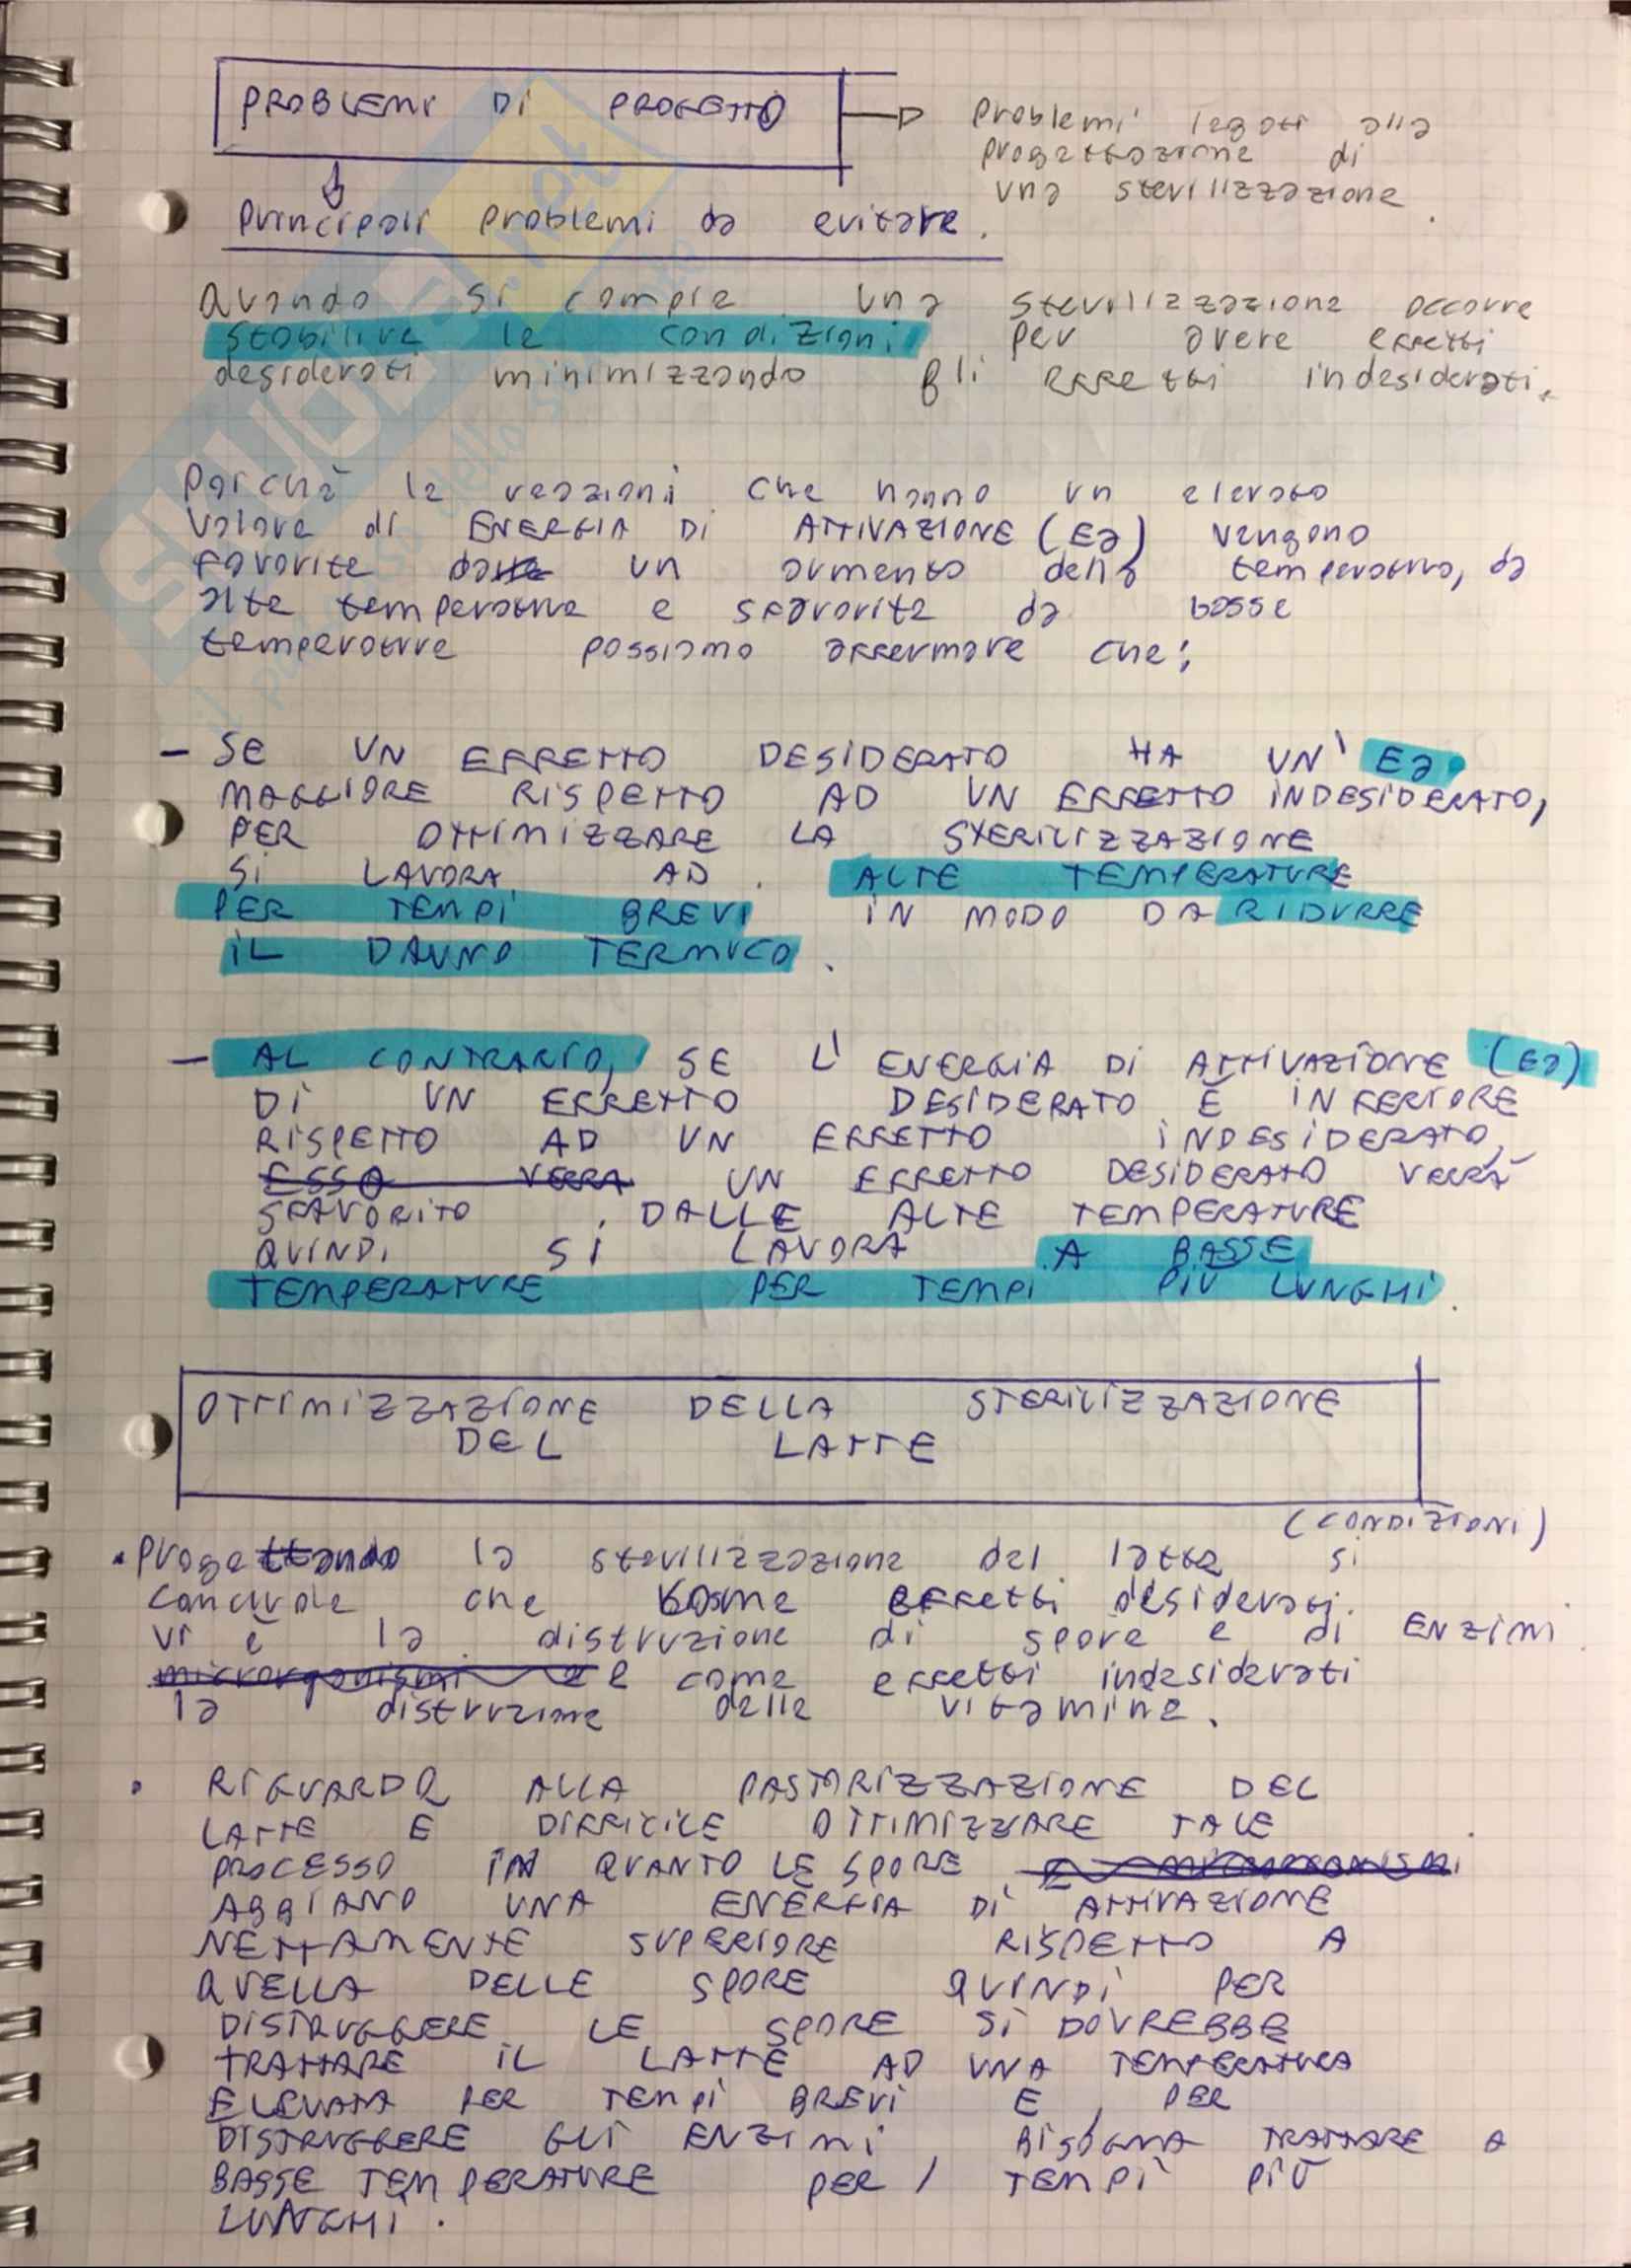 PROBLEMI DI PROGETTO
problemi legati alla
progettazione di
una sterilizzazione.
Principali problemi da evitare.
Quando si compie una sterilizzazione occorre
stabilire le condizioni per avere effetti
desiderati minimizzando gli effetti indesiderati.
Poichè le reazioni che hanno un elevato
valore di ENERGIA DI ATTIVAZIONE (Ea) vengono
favorite da un aumento della temperatura, da
alte temperature e sfavorite da basse
temperature possiamo affermare che:
- SE UN EFFETTO DESIDERATO HA UN' Ea
MAGGIORE RISPETTO AD UN EFFETTO INDESIDERATO,
PER OTTIMIZZARE LA STERILIZZAZIONE
SI LAVORA AD ALTE TEMPERATURE
PER TEMPI BREVI IN MODO DA RIDURRE
IL DANNO TERMICO.
- AL CONTRARIO, SE L'ENERGIA DI ATTIVAZIONE (Ea)
DI UN EFFETTO DESIDERATO È INFERIORE
RISPETTO AD UN EFFETTO INDESIDERATO,
ESSO VERRA UN EFFETTO DESIDERATO VERRÀ
SFAVORITO DALLE ALTE TEMPERATURE
QUINDI SI LAVORA A BASSE
TEMPERATURE PER TEMPI PIÙ LUNGHI.
OTTIMIZZAZIONE DELLA STERILIZZAZIONE
DEL LATTE
(CONDIZIONI)
• Progettando la sterilizzazione del latte si
conclude che come effetti desiderati
vi è la distruzione di spore e di ENZIMI
microrganismi e come effetti indesiderati
la distruzione delle vitamine.
• RIGUARDO ALLA PASTORIZZAZIONE DEL
LATTE E DIFFICILE OTTIMIZZARE TALE
PROCESSO IN QUANTO LE SPORE
ABBIANO UNA ENERGIA DI ATTIVAZIONE
NETTAMENTE SUPERIORE RISPETTO A
QUELLA DELLE SPORE QUINDI PER
DISTRUGGERE LE SPORE SI DOVREBBE
TRATTARE IL LATTE AD UNA TEMPERATURA
ELEVATA PER TEMPI BREVI E PER
DISTRUGGERE GLI ENZIMI BISOGNA TRATTARE A
BASSE TEMPERATURE PER TEMPI PIÙ
LUNGHI.